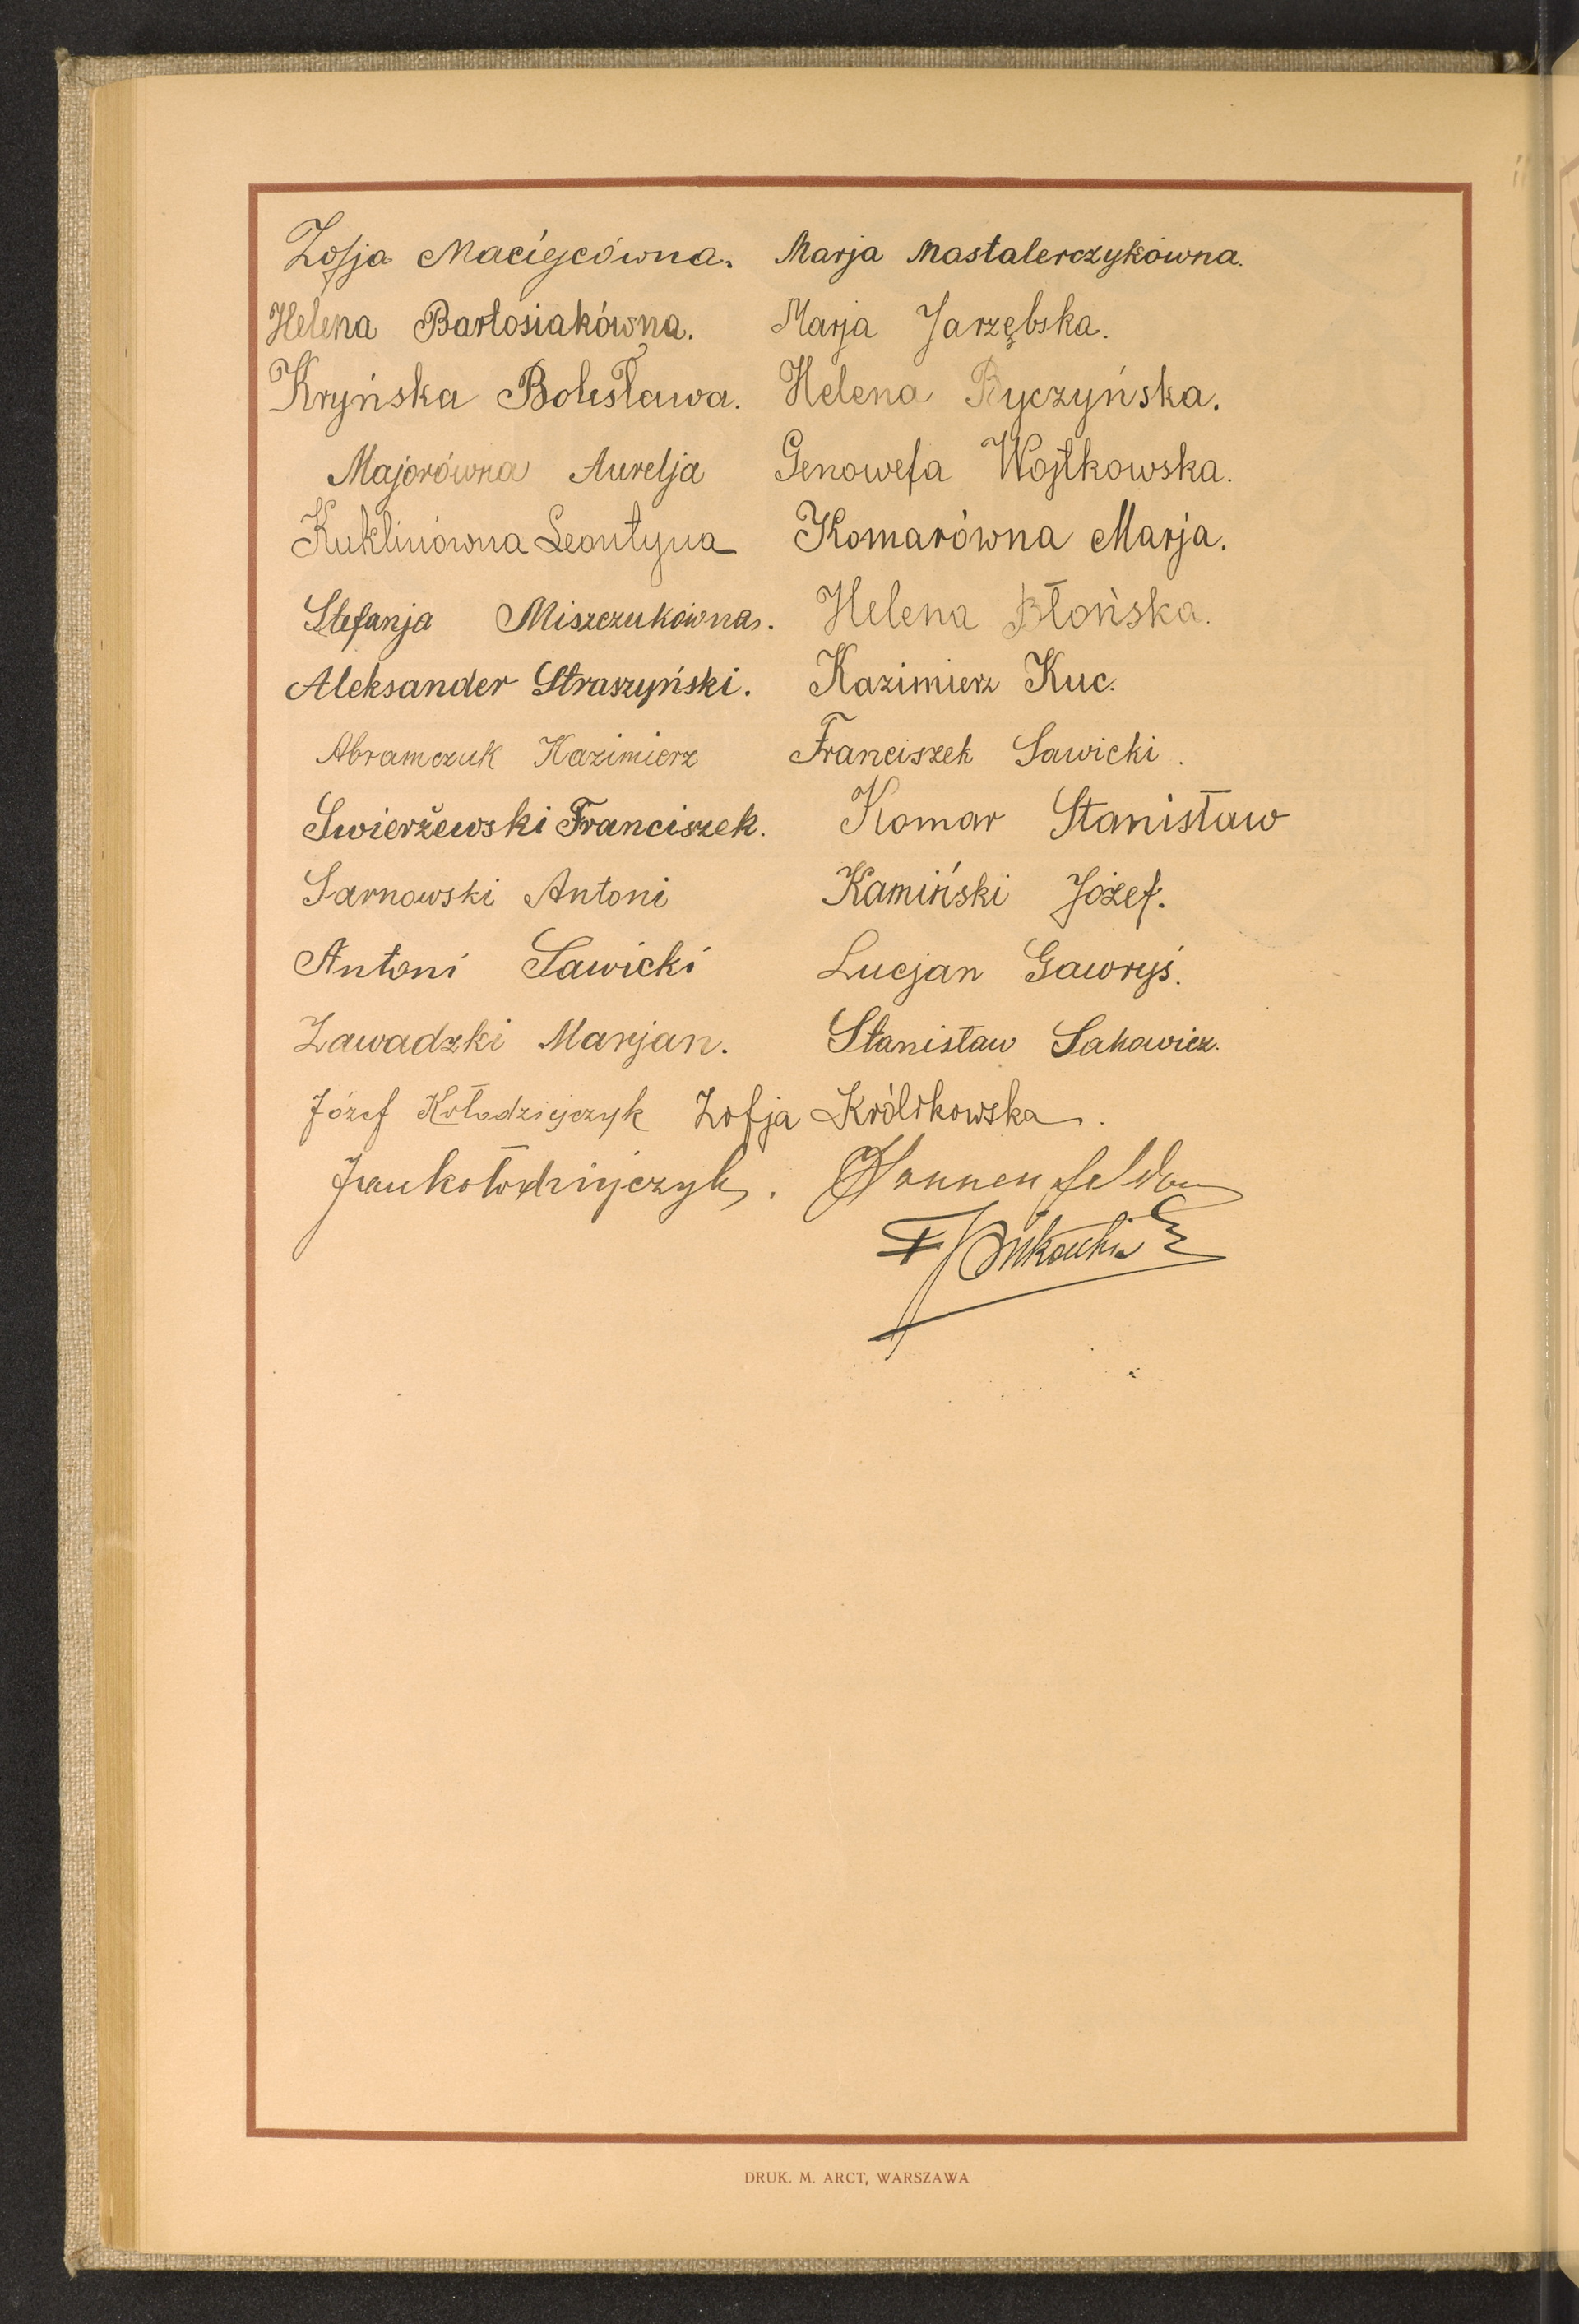 Zofja Maciejcówna. Marja Mastalerczykówna.
Helena Bartosiakówna. Marja Jarzębska.
Kryńska Bolesława. Helena Ryczyńska.
Majorówna Aurelja Genowefa Wojtkowska.
Kukliniówna Leontyna Komarówna Marja.
Stefanja Miszczukówna. Helena Błońska.
Aleksander Straszyński. Kazimierz Kuc.
Abramczuk Kazimierz Franciszek Sawicki.
Swierżewski Franciszek. Komar Stanisław
Sarnowski Antoni Kamiński Józef.
Antoni Sawicki Lucjan Gawryś.
Zawadzki Marjan. Stanisław Sakowicz.
Józef Kołodziejczyk Zofja Królikowska.
Jan Kołodziejczyk.
DRUK. M. ARCT, WARSZAWA